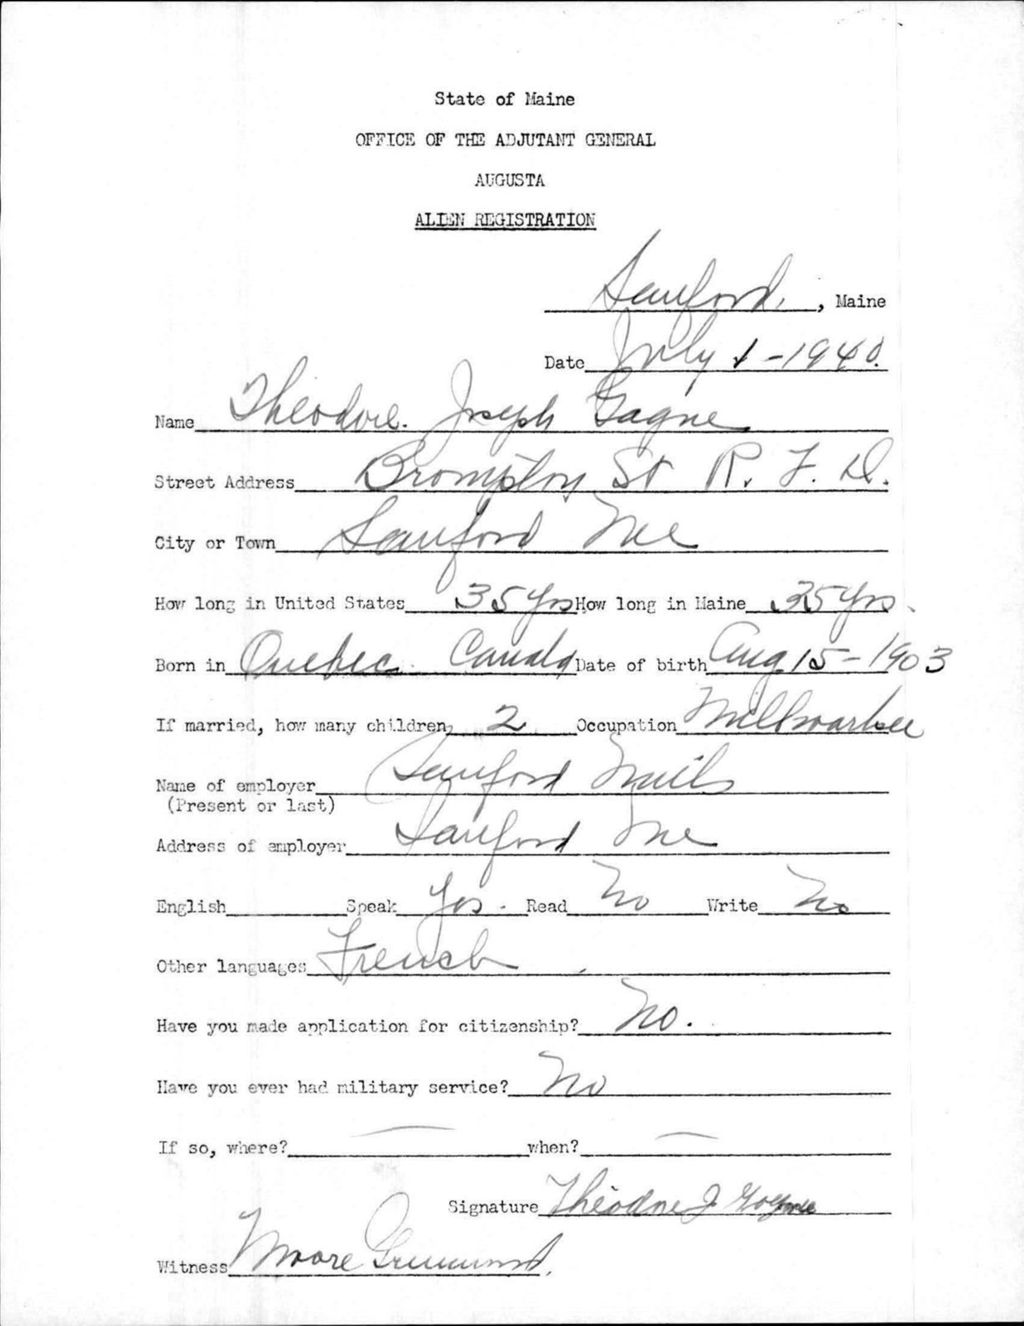 State of Maine
OFFICE OF THE ADJUTANT GENERAL
AUGUSTA
ALIEN REGISTRATION
Sanford, , Maine
Date July 1-1940.
Name Theodore. Joseph Gagne
Street Address Brompton St R. F. D.
City or Town Sanford Me
How long in United States 35 yrs How long in Maine 35 yrs.
Born in Quebec Canada Date of birth Aug 15-1903
If married, how many children 2 Occupation Millworker
Name of employer Sanford Mills
(Present or last)
Address of employer Sanford Me
English Speak Yes. Read No Write No
Other languages French
Have you made application for citizenship? No.
Have you ever had military service? No
If so, where? — when? —
Signature Theodore J Gagne
Witness Moore